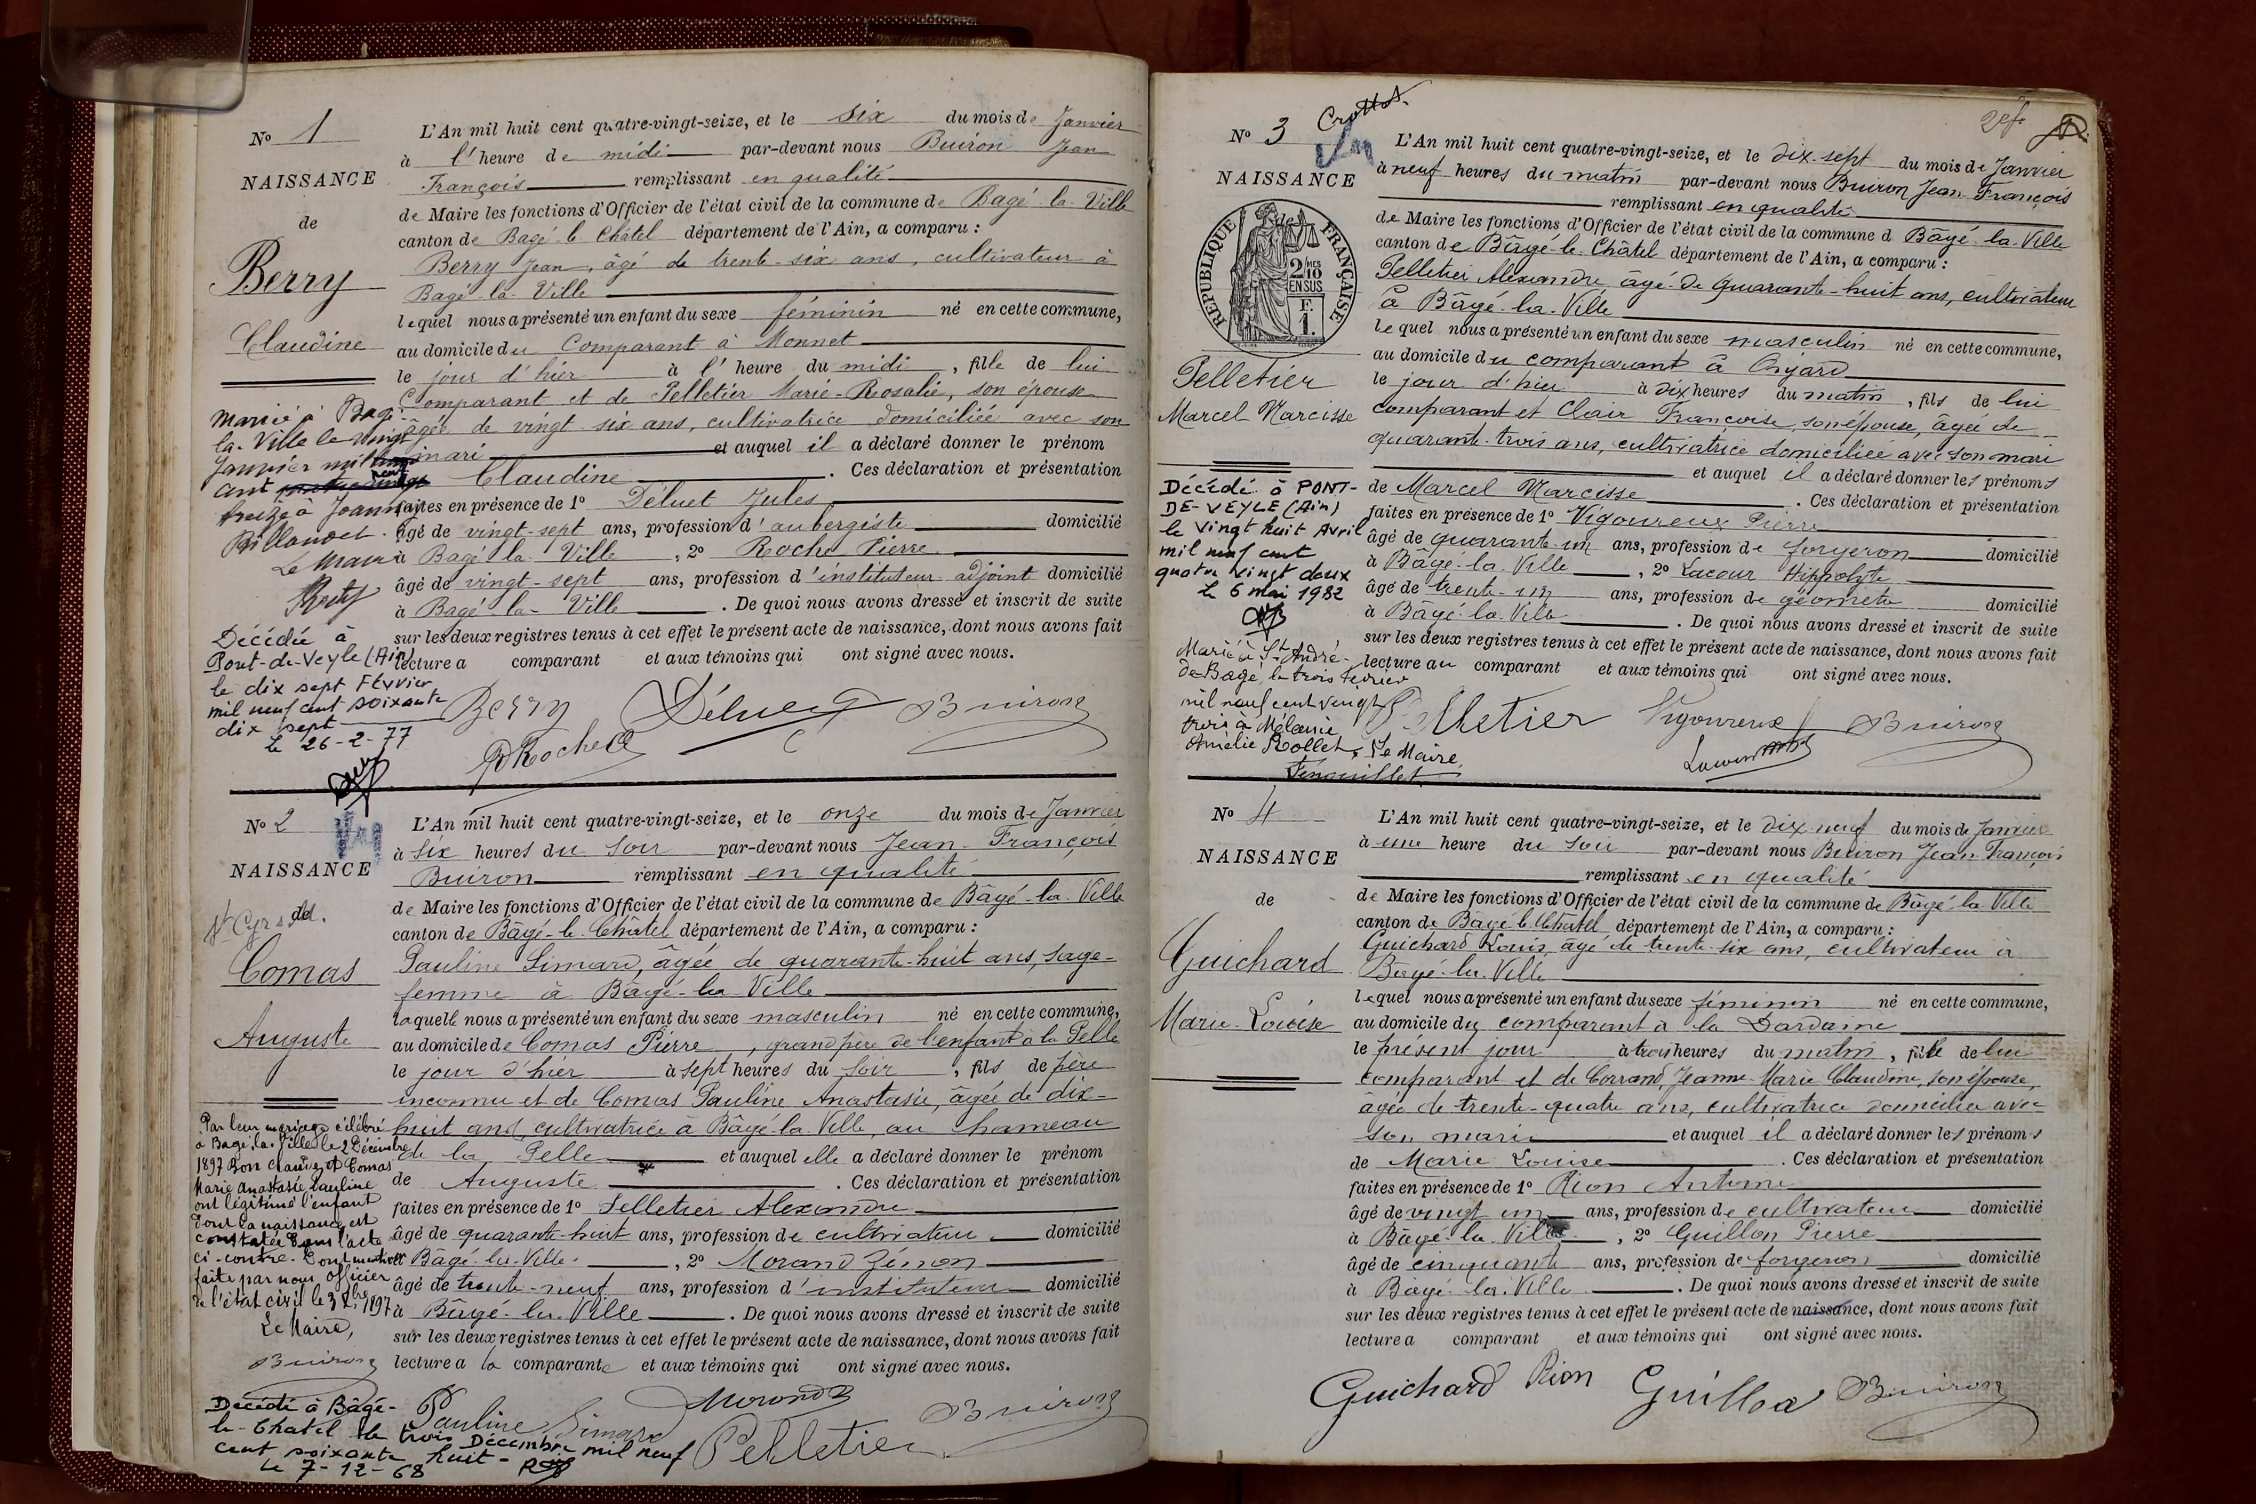 N° 1
NAISSANCE
de
Berry
Claudine
L'An mil huit cent quatre-vingt-seize, et le six du mois de Janvier
à l'heure de midi par-devant nous Buiron Jean
François remplissant en qualité
de Maire les fonctions d'Officier de l'état civil de la commune de Bagé-la-Ville
canton de Bagé-le-Châtel département de l'Ain, a comparu :
Berry Jean, âgé de trente-six ans, cultivateur à
Bagé-la-Ville
lequel nous a présenté un enfant du sexe féminin né en cette commune,
au domicile du Comparant à Monnet
le jour d'hier à l'heure du midi, fille de lui
Comparant et de Pelletier Marie-Rosalie, son épouse
âgée de vingt-six ans, cultivatrice domiciliée avec son
mari et auquel il a déclaré donner le prénom
Claudine. Ces déclaration et présentation
faites en présence de 1° Déluet Jules
âgé de vingt-sept ans, profession d'aubergiste domicilié
à Bagé-la-Ville, 2° Roche Pierre
âgé de vingt-sept ans, profession d'instituteur adjoint domicilié
à Bagé-la-Ville. De quoi nous avons dressé et inscrit de suite
sur les deux registres tenus à cet effet le présent acte de naissance, dont nous avons fait
lecture a comparant et aux témoins qui ont signé avec nous.
Berry Déluet Buiron
Roche
Marié à Bagé-
la-Ville le vingt
Janvier mil
neuf
cent
treize à Joanny
Billoudet.
Le Maire
Décédée à
Pont-de-Veyle (Ain)
le dix sept Février
mil neuf cent soixante
dix sept
le 26-2-77
N° 2
NAISSANCE
de
Comas
Auguste
L'An mil huit cent quatre-vingt-seize, et le onze du mois de Janvier
à six heures du soir par-devant nous Jean-François
Buiron remplissant en qualité
de Maire les fonctions d'Officier de l'état civil de la commune de Bâgé-la-Ville
canton de Bâgé-le-Châtel département de l'Ain, a comparu :
Pauline Simard, âgée de quarante-huit ans, sage-
femme à Bâgé-la-Ville
laquelle nous a présenté un enfant du sexe masculin né en cette commune,
au domicile de Comas Pierre, grand père de l'enfant à la Pelle
le jour d'hier à sept heures du soir, fils de père
inconnu et de Comas Pauline Anastasie, âgée de dix-
huit ans, cultivatrice à Bâgé-la-Ville, au hameau
de la Pelle et auquel elle a déclaré donner le prénom
de Auguste. Ces déclaration et présentation
faites en présence de 1° Pelletier Alexandre
âgé de quarante-huit ans, profession de cultivateur domicilié
à Bâgé-la-Ville, 2° Morand Zénon
âgé de trente-neuf ans, profession d'instituteur domicilié
à Bâgé-la-Ville. De quoi nous avons dressé et inscrit de suite
sur les deux registres tenus à cet effet le présent acte de naissance, dont nous avons fait
lecture a la comparante et aux témoins qui ont signé avec nous.
Pauline Simard Morand Z Buiron
Pelletier
Par leur mariage célébré
à Bagé-la-Ville le 2 Décembre
1897 Bon Claude et Comas
Marie Anastasie Pauline
ont légitimé l'enfant
dont la naissance est
constatée dans l'acte
ci-contre.
faite par nous Officier
de l'état civil le 3 Xbre 1897
Le Maire,
Buiron
Décédé à Bâgé-
le-Chatel le trois Décembre mil neuf
cent soixante huit -
le 7-12-68
2e f
N° 3
Crottet.
NAISSANCE
de
RÉPUBLIQUE FRANÇAISE
2/10 MES
EN SUS
F.
1.
Pelletier
Marcel Narcisse
L'An mil huit cent quatre-vingt-seize, et le dix-sept du mois de Janvier
à neuf heures du matin par-devant nous Buiron Jean-François
remplissant en qualité
de Maire les fonctions d'Officier de l'état civil de la commune d Bâgé-la-Ville
canton de Bâgé-le-Châtel département de l'Ain, a comparu :
Pelletier Alexandre, âgé de quarante-huit ans, cultivateur
à Bâgé-la-Ville
lequel nous a présenté un enfant du sexe masculin né en cette commune,
au domicile du comparant à
le jour d'hier à dix heures du matin, fils de lui
comparant et Clair Françoise, son épouse, âgée de
quarante-trois ans, cultivatrice domiciliée avec son mari
et auquel il a déclaré donner les prénoms
de Marcel Narcisse. Ces déclaration et présentation
faites en présence de 1° Vigoureux Pierre
âgé de quarante-un ans, profession de forgeron domicilié
à Bâgé-la-Ville, 2° Lacour Hippolyte
âgé de trente-un ans, profession de géomètre domicilié
à Bâgé-la-Ville. De quoi nous avons dressé et inscrit de suite
sur les deux registres tenus à cet effet le présent acte de naissance, dont nous avons fait
lecture au comparant et aux témoins qui ont signé avec nous.
Pelletier Vigoureux Buiron
Lacour
Décédé à PONT-
DE-VEYLE (Ain)
le vingt huit Avril
mil neuf cent
quatre vingt deux
le 6 mai 1982
Marié à St André-
de Bagé, le trois Février
mil neuf cent vingt
trois à Mélanie
Amélie Rollet. Le Maire,
N° 4
NAISSANCE
de
Guichard
Marie-Louise
L'An mil huit cent quatre-vingt-seize, et le dix-neuf du mois de Janvier
à une heure du soir par-devant nous Buiron Jean-François
remplissant en qualité
de Maire les fonctions d'Officier de l'état civil de la commune de Bâgé-la-Ville
canton de Bâgé-le-Châtel département de l'Ain, a comparu :
Guichard Louis, âgé de trente-six ans, cultivateur à
Bâgé-la-Ville
lequel nous a présenté un enfant du sexe féminin né en cette commune,
au domicile du comparant à la Dardaine
le présent jour à trois heures du matin, fille de lui
comparant et de Corrand, Jeanne-Marie Claudine, son épouse,
âgée de trente-quatre ans, cultivatrice domiciliée avec
son mari et auquel il a déclaré donner les prénoms
de Marie Louise. Ces déclaration et présentation
faites en présence de 1° Rion Antoine
âgé de vingt un ans, profession de cultivateur domicilié
à Bâgé-la-Ville, 2° Guillon Pierre
âgé de cinquante ans, profession de forgeron domicilié
à Bâgé-la-Ville. De quoi nous avons dressé et inscrit de suite
sur les deux registres tenus à cet effet le présent acte de naissance, dont nous avons fait
lecture a comparant et aux témoins qui ont signé avec nous.
Guichard Rion Guillon Buiron